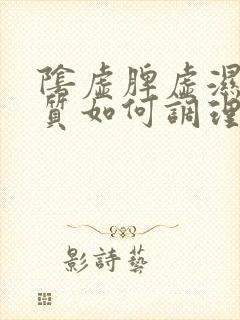 陰虛脾虛濕
質如何調理
影詩藝